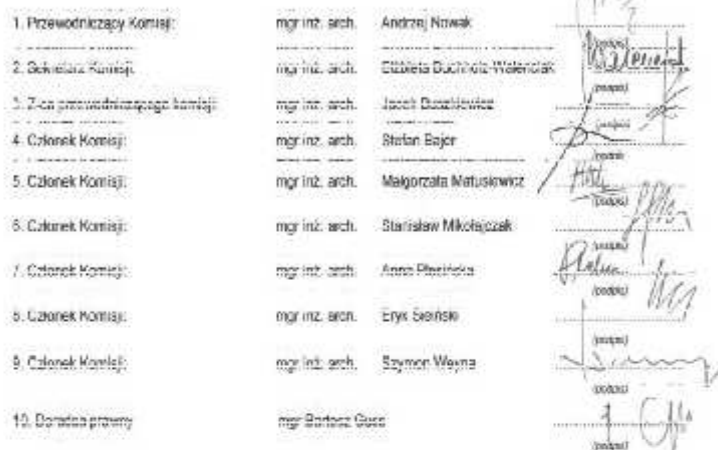 1. Przewodniczący Komisji: mgr inż. arch. Andrzej Nowak
2. Sekretarz Komisji: mgr inż. arch. Elżbieta Buchholz-Walenciak
(podpis)
3. Z-ca przewodniczącego komisji: mgr inż. arch. Jacek
(podpis)
4. Członek Komisji: mgr inż. arch. Stefan Bajer
(podpis)
5. Członek Komisji: mgr inż. arch. Małgorzata Matusiewicz
(podpis)
6. Członek Komisji: mgr inż. arch. Stanisław Mikołajczak
(podpis)
7. Członek Komisji: mgr inż. arch. Anna Plesińska
(podpis)
8. Członek Komisji: mgr inż. arch. Eryk Sieiński
(podpis)
9. Członek Komisji: mgr inż. arch. Szymon Weyna
(podpis)
10. Doradca prawny mgr Bartosz Guss
(podpis)